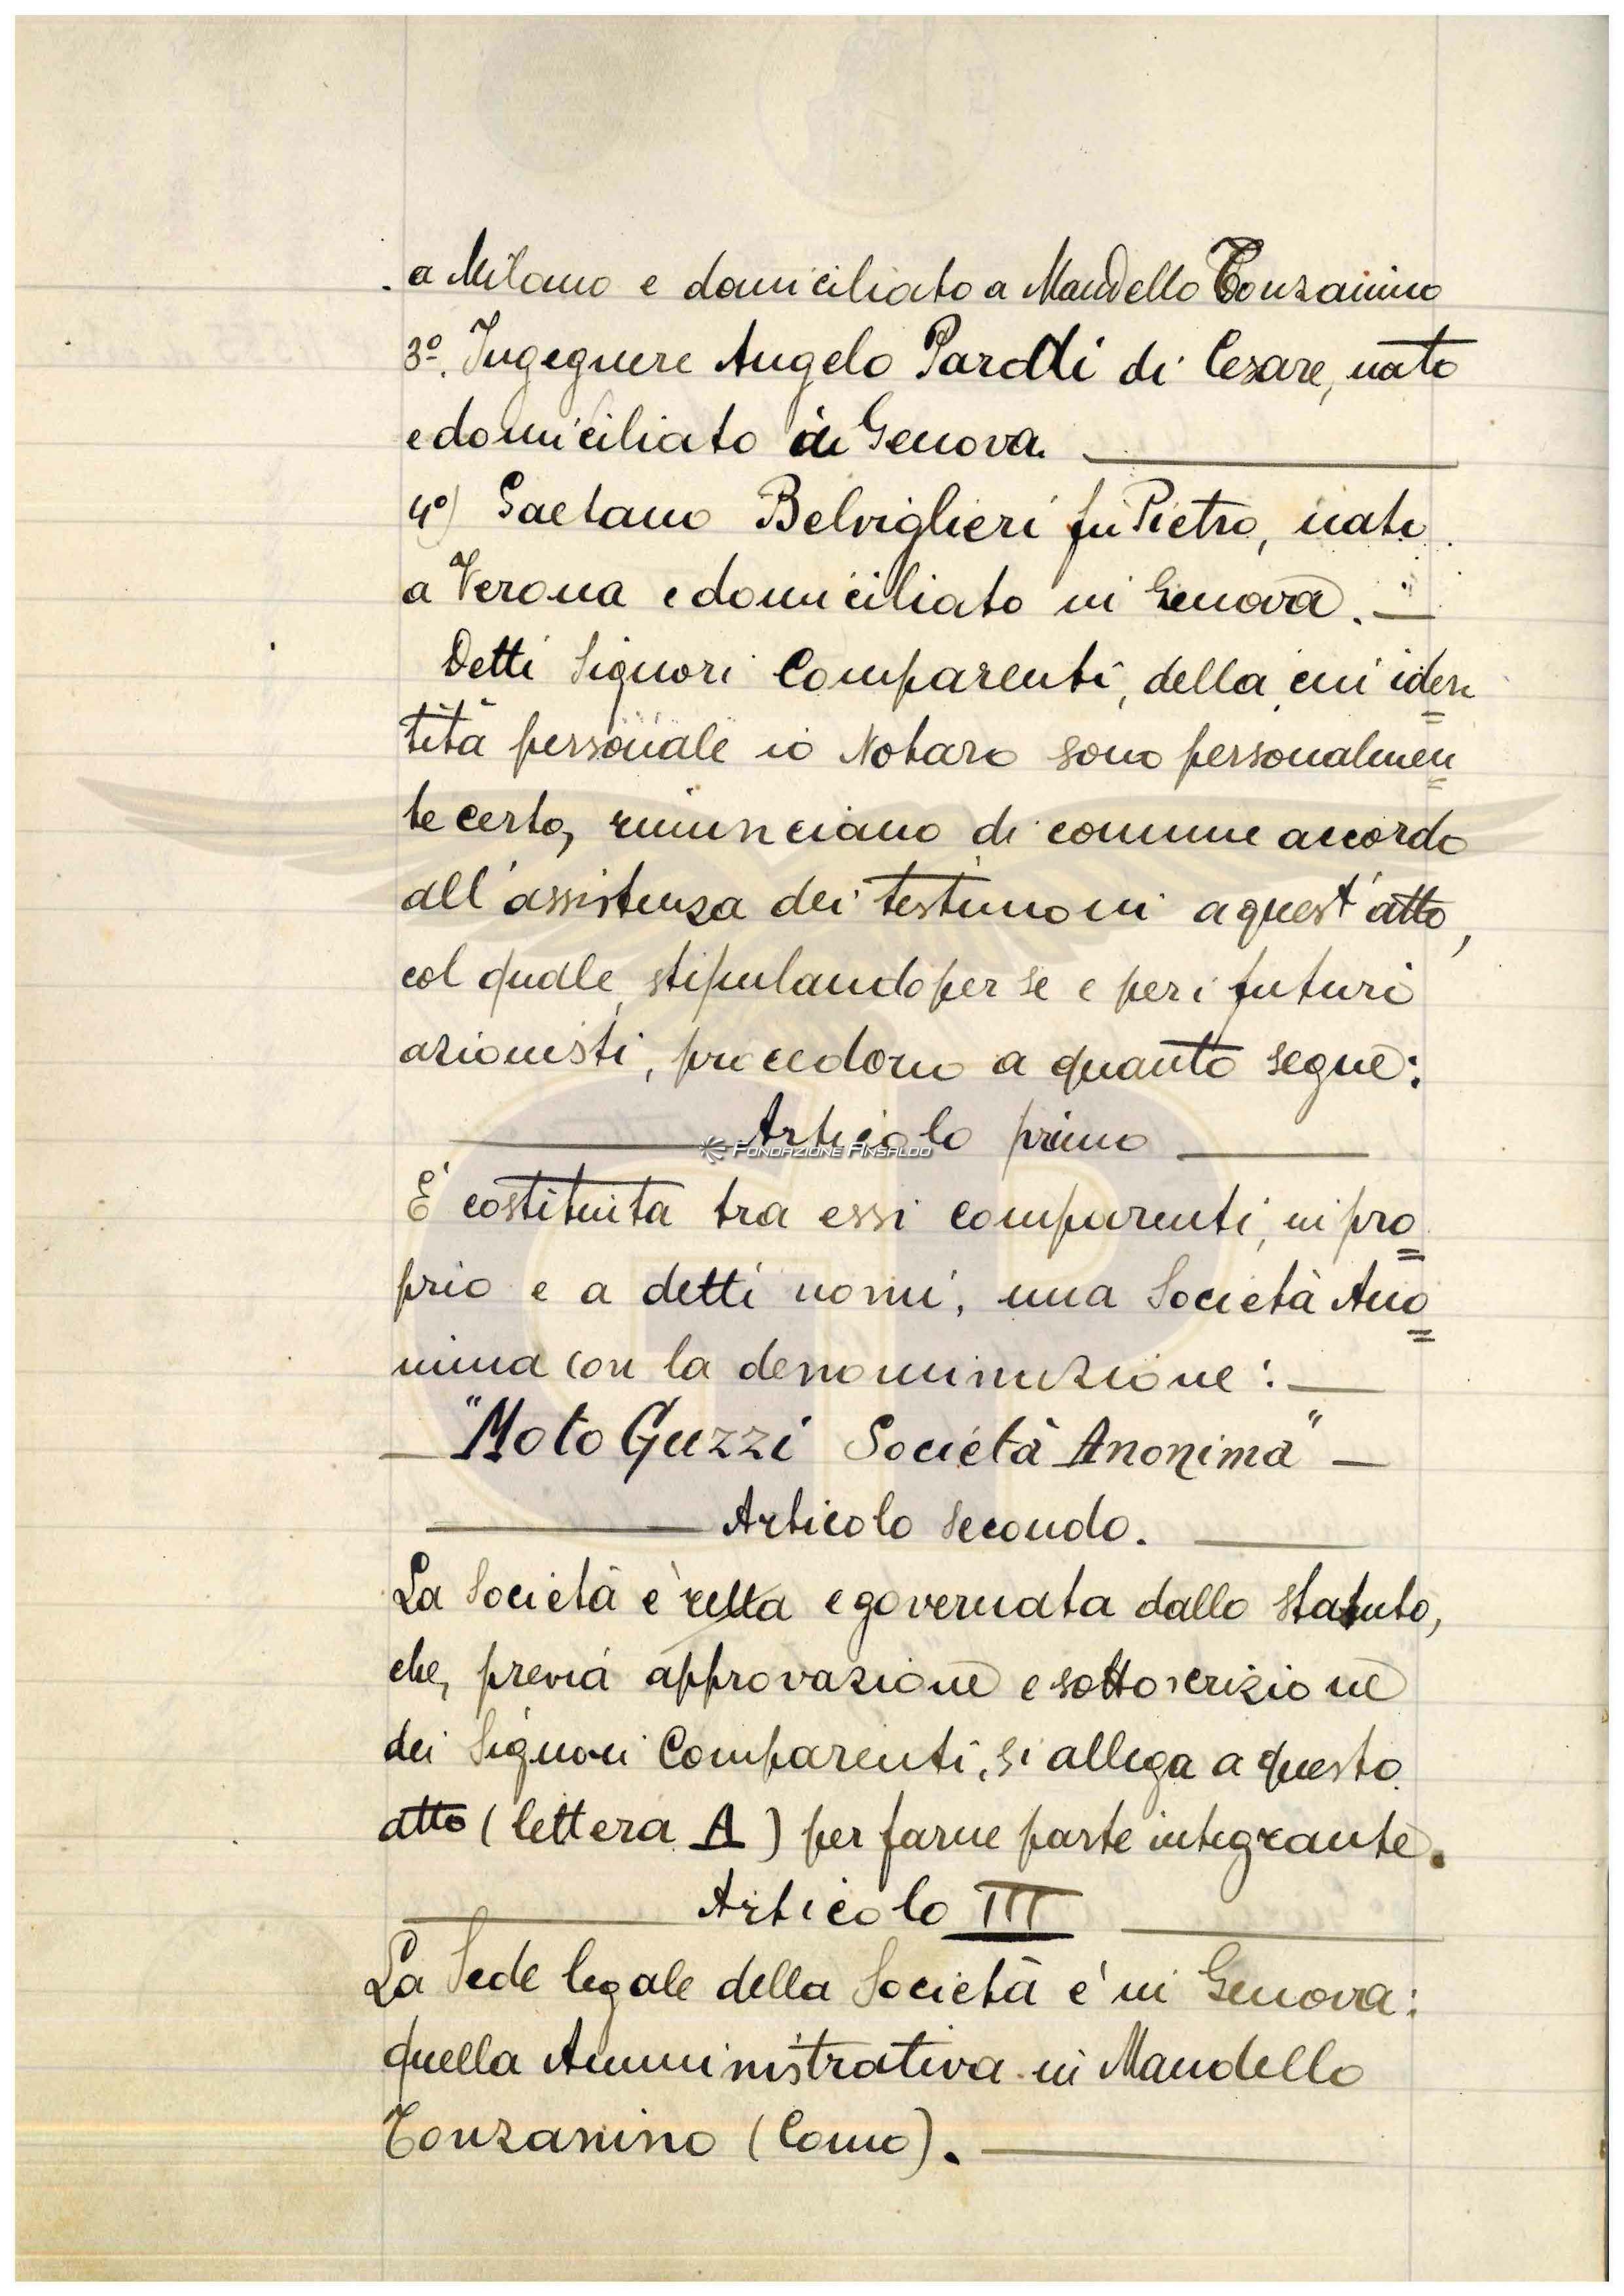 a Milano e domiciliato a Mandello Tonzanino
3º. Ingegnere Angelo Parodi di Cesare, nato
e domiciliato in Genova.
4º) Gaetano Belviglieri fu Pietro, nato
a Verona e domiciliato in Genova.
Detti Signori Comparenti, della cui iden
tità personale io Notaro sono personalmen
te certo, rinunciano di comune accordo
all'assistenza dei testimoni a quest'atto,
col quale, stipulando per se e per i futuri
azionisti, procedono a quanto segue:
Articolo primo
FONDAZIONE ANSALDO
E' costituita tra essi comparenti, in pro
prio e a detti nomi, una Società Ano
nima con la denominazione:
"Moto Guzzi Società Anonima"
Articolo secondo.
La Società è retta e governata dallo statuto,
che, previa approvazione e sottoscrizione
dei Signori Comparenti, si allega a questo
atto (lettera A) per farne parte integrante.
Articolo III
La Sede legale della Società è in Genova:
quella Amministrativa in Mandello
Tonzanino (Como).